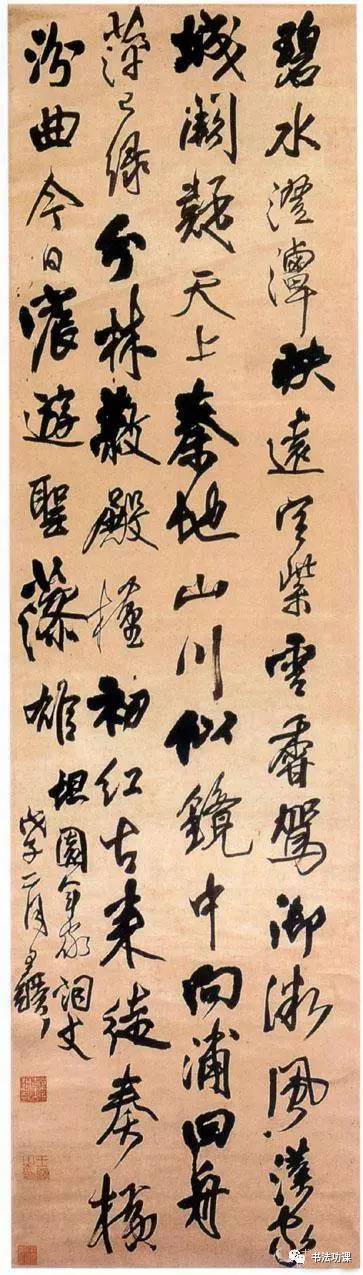 碧水澄潭映遠空紫雲香駕御微風漢家
城闕疑天上秦地山川似鏡中向浦回舟
萍已綠分林蔽殿槿初紅古來徒奏橫
汾曲今日宸遊聖藻雄坦園年家詞丈
戊子二月王鐸
书法功课